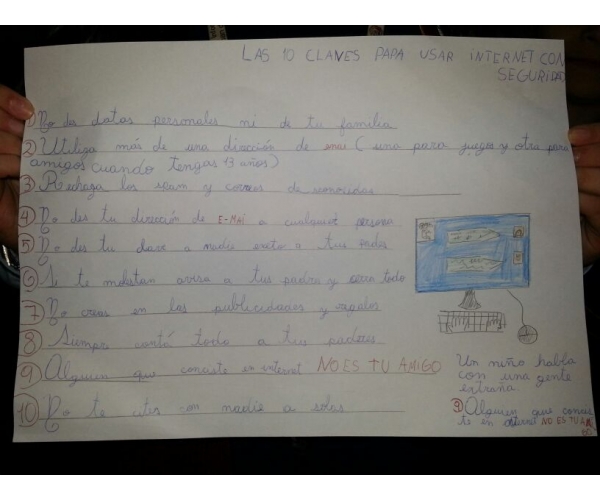 LAS 10 CLAVES PAPA USAR INTERNET CON
SEGURIDAD
1) No da datos personales ni de tu familia
2) Utiliza más de una dirección de emai (una para juegos y otra para
amigos cuando tengas 13 años)
3) Rechaza los span y correos de
4) No des tu dirección de E-MAi a cualquier persona
5) No des tu clave a nadie exeto a tus
6) Si te molestan avisa a tus padre y todo
7) No creas en las publicidades y regalos
8) contá todo a tus padres
9) Alguien que conoiste en internet NO ES TU AMIGO
10) No te con nadie a solas
Un niño habla
con una gente
extraña
9) Alguien que conois
te en internet NO ES TU AMI
GO